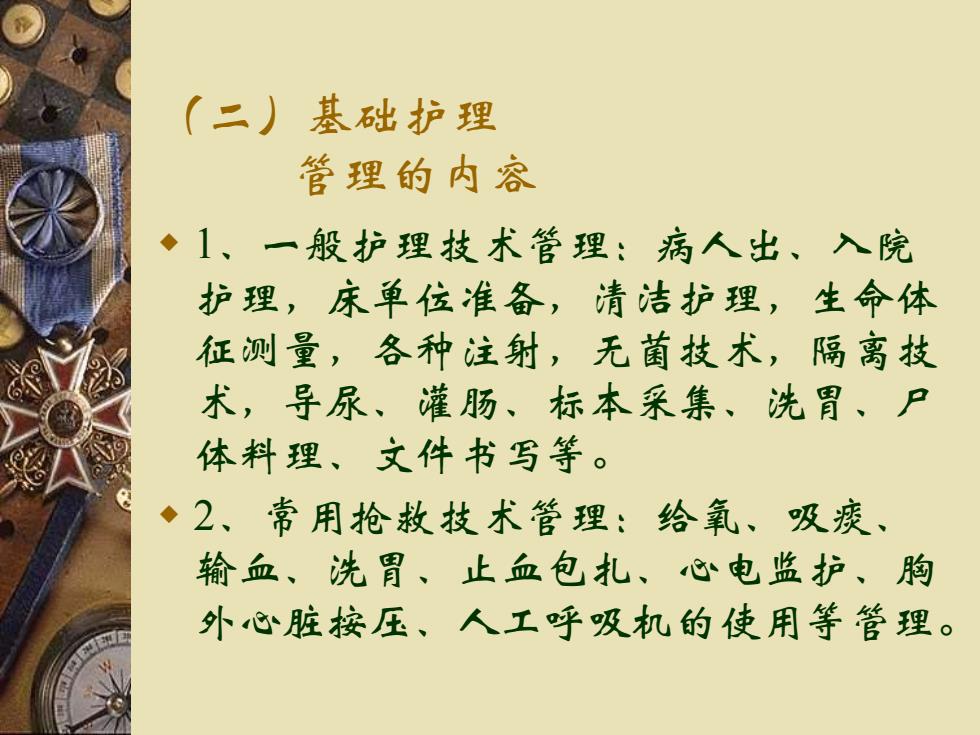 （二）基础护理
管理的内容
1、一般护理技术管理：病人出、入院
护理，床单位准备，清洁护理，生命体
征测量，各种注射，无菌技术，隔离技
术，导尿、灌肠、标本采集、洗胃、尸
体料理、文件书写等。
2、常用抢救技术管理：给氧、吸痰、
输血、洗胃、止血包扎、心电监护、胸
外心脏按压、人工呼吸机的使用等管理。